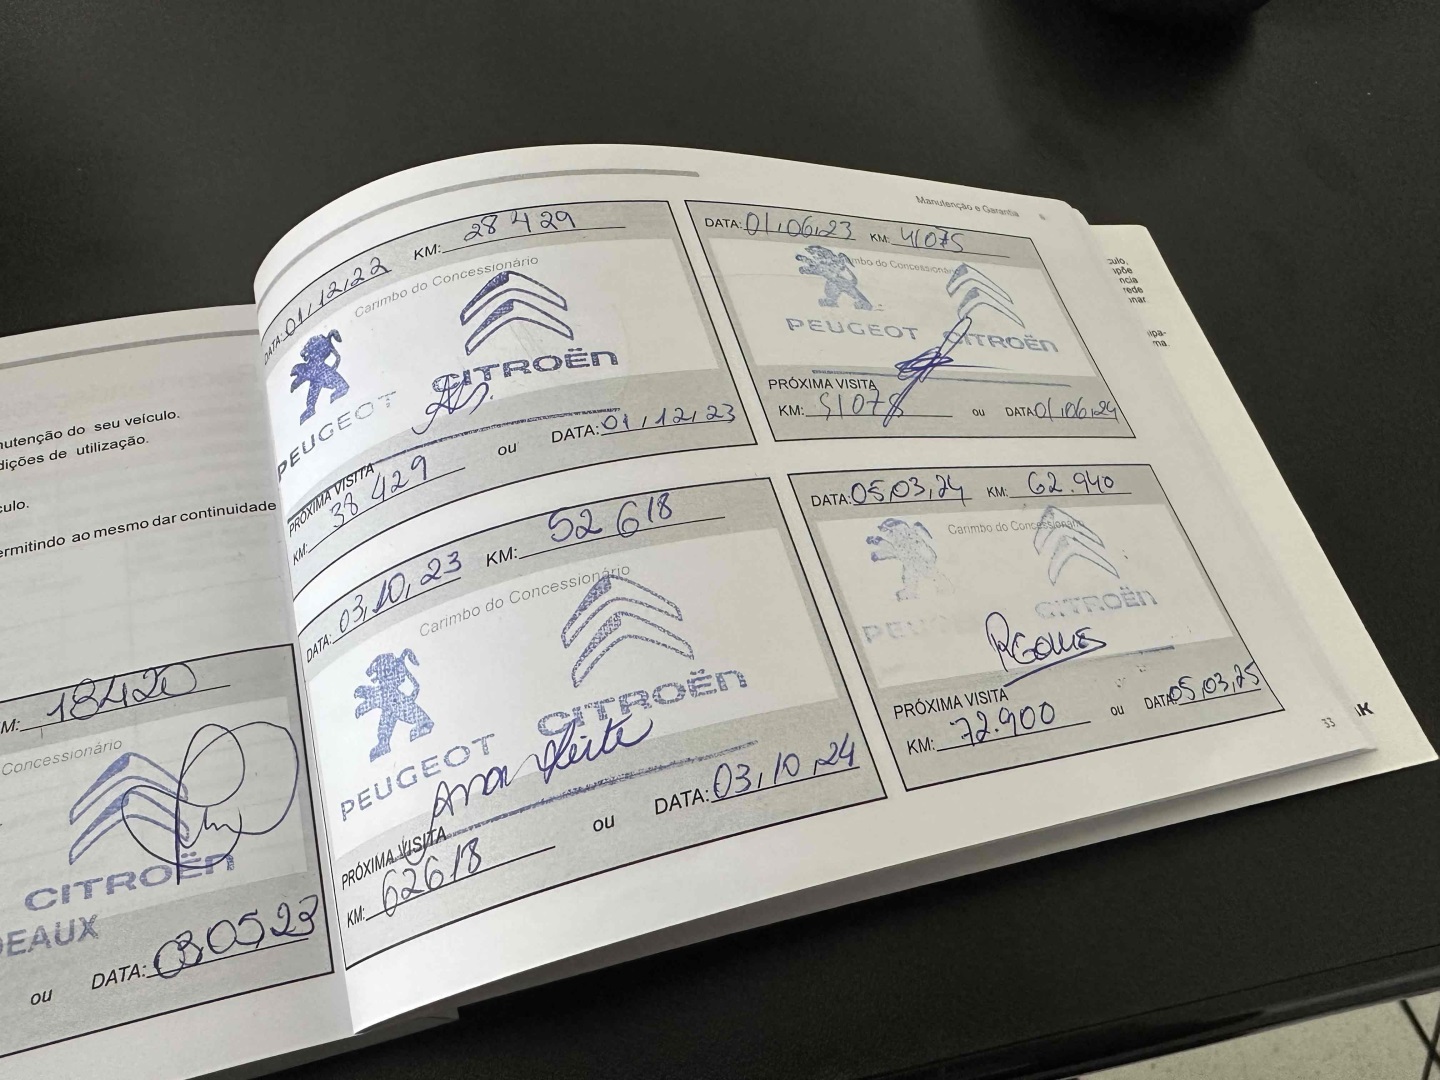 nutenção do seu veículo.
dições de utilização.
culo.
ermitindo ao mesmo dar continuidade
M: 18420
Concessionário
CITROËN
DEAUX
ou DATA: 03 05 23
DATA: 01/12/22 KM: 28 429
Carimbo do Concessionário
PEUGEOT CITROËN
PRÓXIMA VISITA
KM: 38 429 ou DATA: 01/12/23
Manutenção e Garantia
DATA: 01/06/23 KM: 41075
Carimbo do Concessionário
PEUGEOT CITROËN
PRÓXIMA VISITA
KM: 51075 ou DATA: 01/06/24
DATA: 03/10/23 KM: 52 618
Carimbo do Concessionário
PEUGEOT CITROËN
Ana Leite
PRÓXIMA VISITA
KM: 62618 ou DATA: 03/10/24
DATA: 05/03/24 KM: 62.940
Carimbo do Concessionário
PEUGEOT CITROËN
RGomes
PRÓXIMA VISITA
KM: 72.900 ou DATA: 05/03/25
33
culo,
npõe
ncia
rede
onar
ipa-
ma.
IK